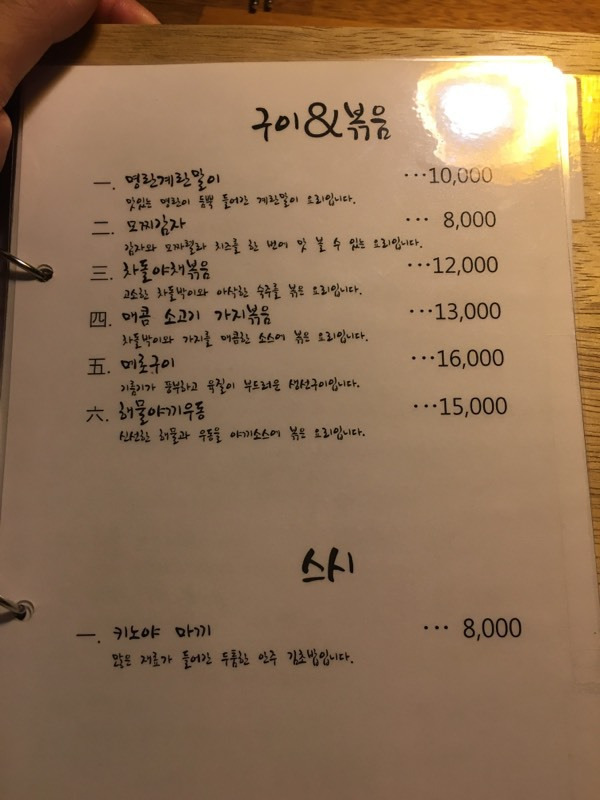 구이&볶음
一. 명란계란말이 ···10,000
맛있는 명란이 듬뿍 들어간 계란말이 요리입니다.
二. 모찌감자 ··· 8,000
감자와 모짜렐라 치즈를 한 번에 맛 볼 수 있는 요리입니다.
三. 차돌야채볶음 ···12,000
고소한 차돌박이와 아삭한 숙주를 볶은 요리입니다.
四. 매콤 소고기 가지볶음 ···13,000
차돌박이와 가지를 매콤한 소스에 볶은 요리입니다.
五. 메로구이 ···16,000
기름기가 풍부하고 육질이 부드러운 생선구이입니다.
六. 해물야끼우동 ···15,000
신선한 해물과 우동을 야끼소스에 볶은 요리입니다.
스시
一. 키노야 마끼 ··· 8,000
많은 재료가 들어간 두툼한 안주 김초밥입니다.